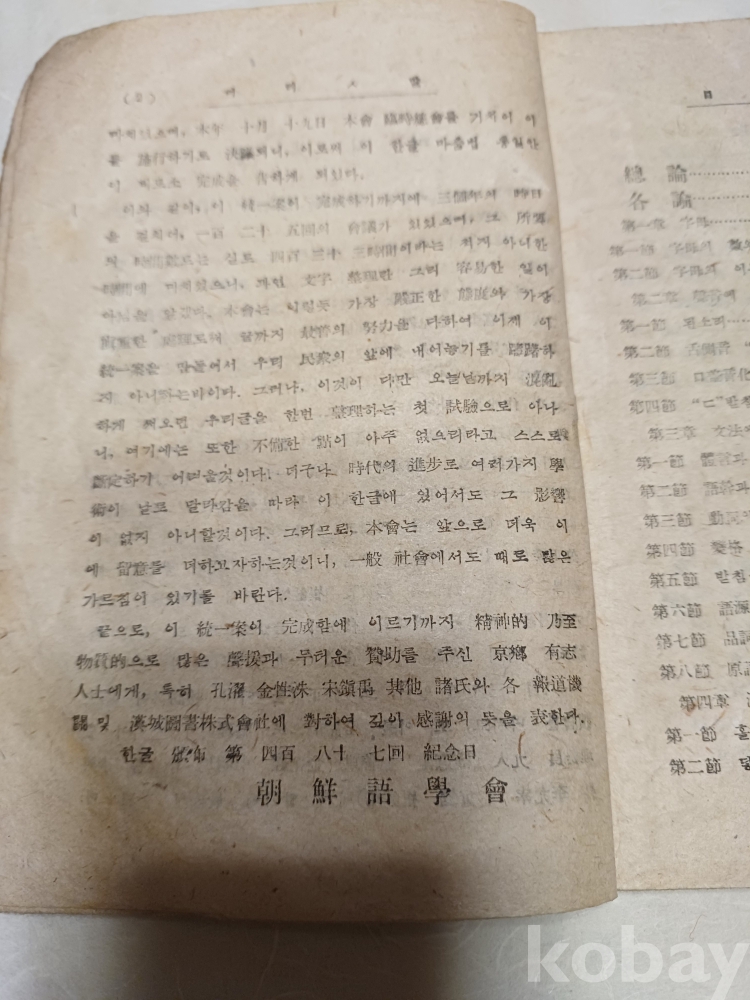 (8) 머 리 ㅅ 말
마치었으며, 本年 十月 十九日 本會 臨時總會를 거치어 이
를 施行하기로 決議되니, 이로써 이 한글 마춤법 통일안
이 비로소 完成을 告하게 되었다.
이와 같이, 이 統一案이 完成하기까지에 三個年의 時日
을 걸치어, 一百 二十 五回의 會議가 있었으며, 그 所要
의 時間數로는 실로 四百 三十 三時間이라는 적지 아니한
時間에 마치었으니, 과연 文字 整理란 그리 容易한 일이
아님을 알겠다. 本會는 이렇듯 가장 嚴正한 態度와 가장
한 로써 끝까지 最善의 努力을 다하여 이제 이
統一案은 만들어서 우리 民衆의 앞에 내어놓기를 躊躇하
지 아니하는바이다. 그러나, 이것이 다만 오늘날까지
하게 써오던 우리글을 한번 整理하는 첫 試驗으로 아나
니, 여기에는 또한 不備한 點이 아주 없으리라고 스스로
認定하기 어려울것이다. 더구나, 時代의 進步로 여러가지 學
術이 날로 달라감을 따라 이 한글에 있어서도 그 影響
이 없지 아니할것이다. 그러므로, 本會는 앞으로 더욱 이
에 留意를 더하고자하는것이니, 一般 社會에서도 때로 많은
가르침이 있기를 바란다.
끝으로, 이 統一案이 完成함에 이르기까지 精神的 乃至
物質的으로 많은 聲援과 두터운 贊助를 주신 京鄕 有志
人士에게, 특히 孔濯 金性洙 宋鎭禹 其他 諸氏와 各 報道機
關 및 漢城圖書株式會社에 對하여 깊이 感謝의 뜻을 表한다.
한글 頒布 第 四百 八十 七回 紀念日
朝鮮語學會
目
總 論
各 論
第一章 字母
第一節 字母의 數와
第二節 字母의 이
第二章
第一節 된소리
第二節 舌側音 "
第三節 口蓋音化
第四節 "ㄷ" 받침
第三章 文法에
第一節 體言과
第二節 語幹과
第三節 動詞의
第四節 變格
第五節 받침
第六節 語源
第七節 品詞
第八節 原詞
第四章
第一節 홀
第二節 닿
kobay